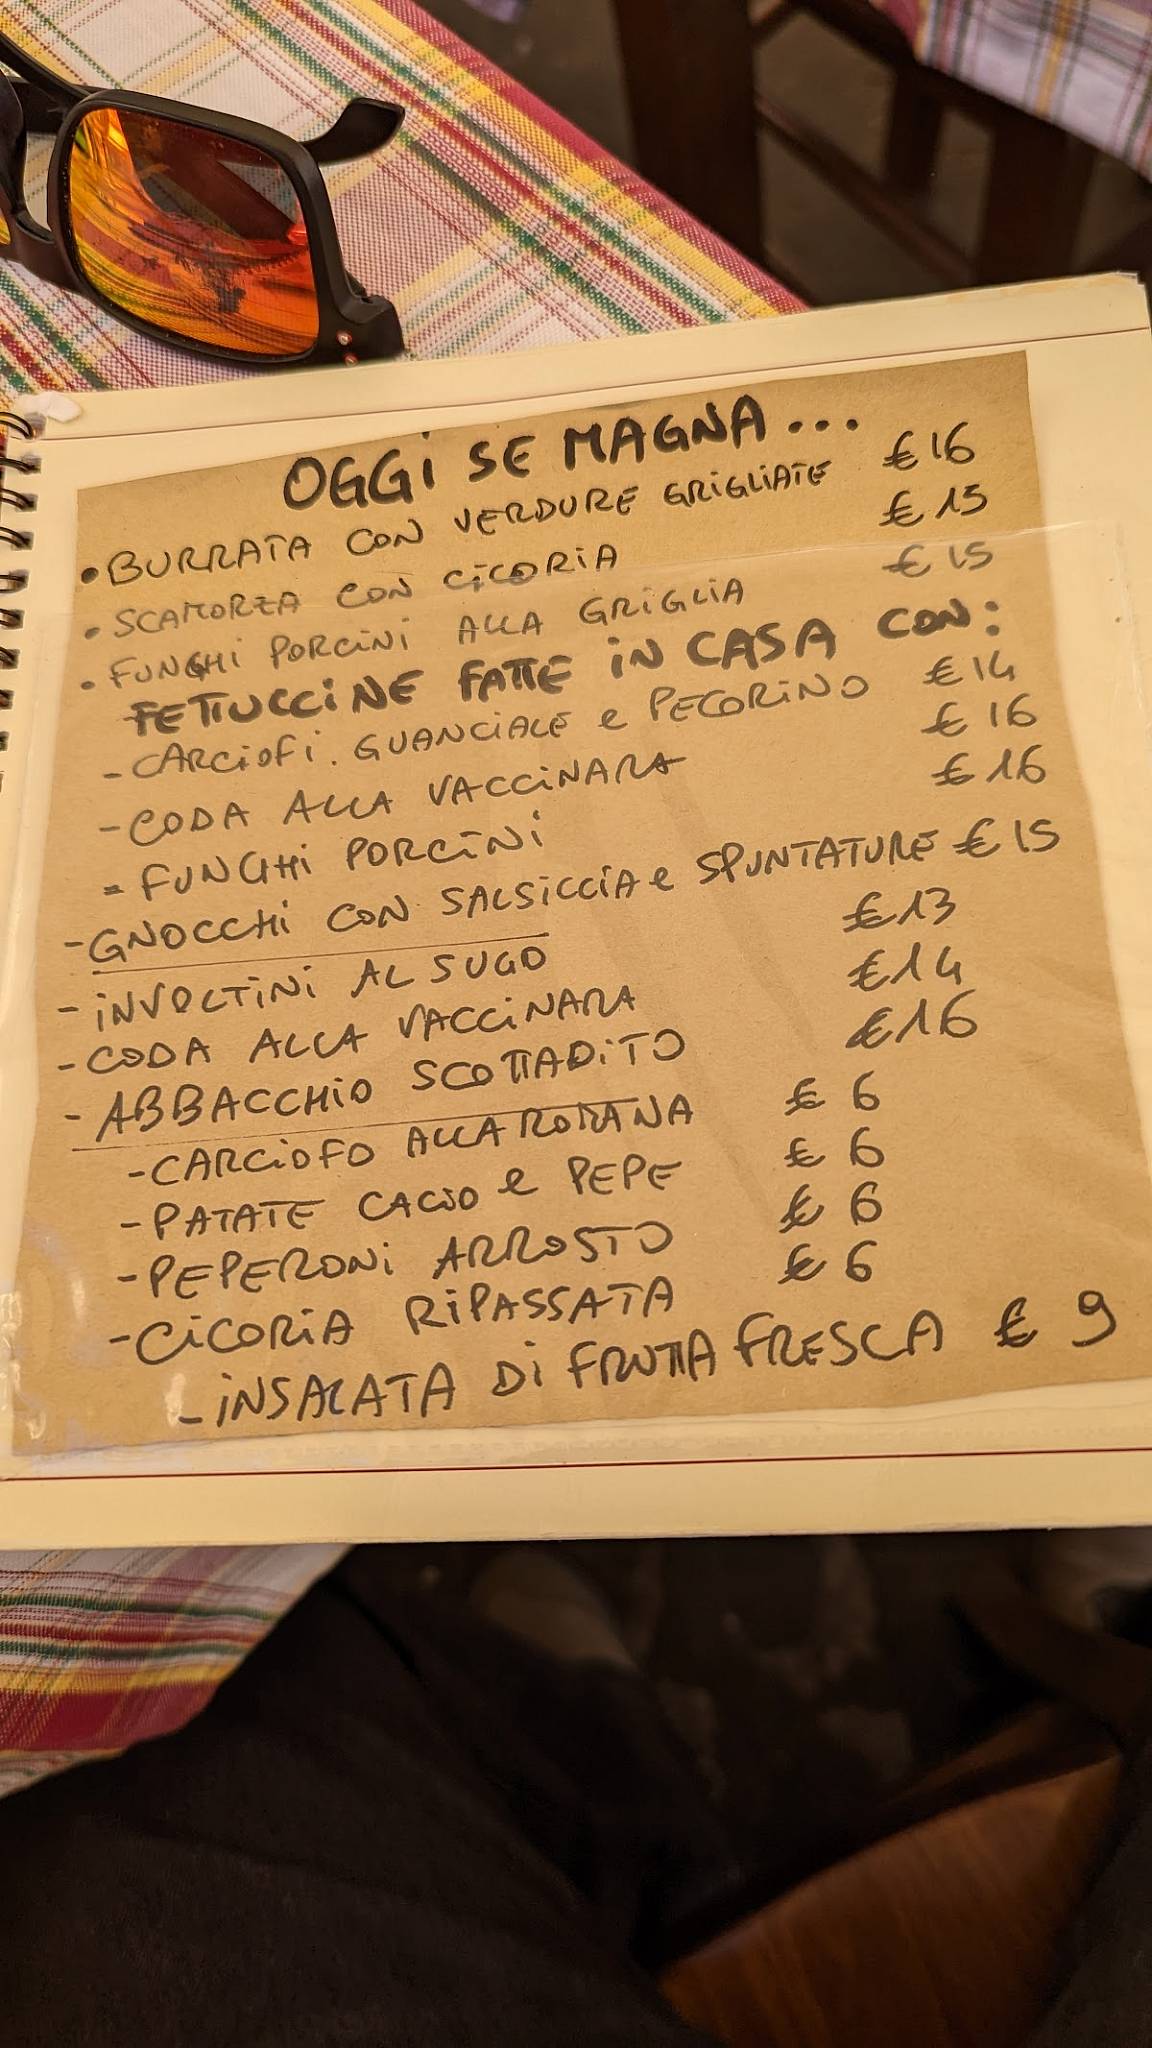 OGGI SE MAGNA...
• BURRATA CON VERDURE GRIGLIATE € 16
• SCAMORZA CON CICORIA € 15
• FUNGHI PORCINI ALLA GRIGLIA € 15
FETTUCCINE FATTE IN CASA CON:
- CARCIOFI. GUANCIALE e PECORINO € 14
- CODA ALLA VACCINARA € 16
- FUNGHI PORCINI € 16
- GNOCCHI CON SALSICCIA e SPUNTATURE € 15
- INVOLTINI AL SUGO € 13
- CODA ALLA VACCINARA € 14
- ABBACCHIO SCOTTADITO € 16
- CARCIOFO ALLA ROMANA € 6
- PATATE CACIO e PEPE € 6
- PEPERONI ARROSTO € 6
- CICORIA RIPASSATA € 6
- INSALATA DI FRUTTA FRESCA € 9